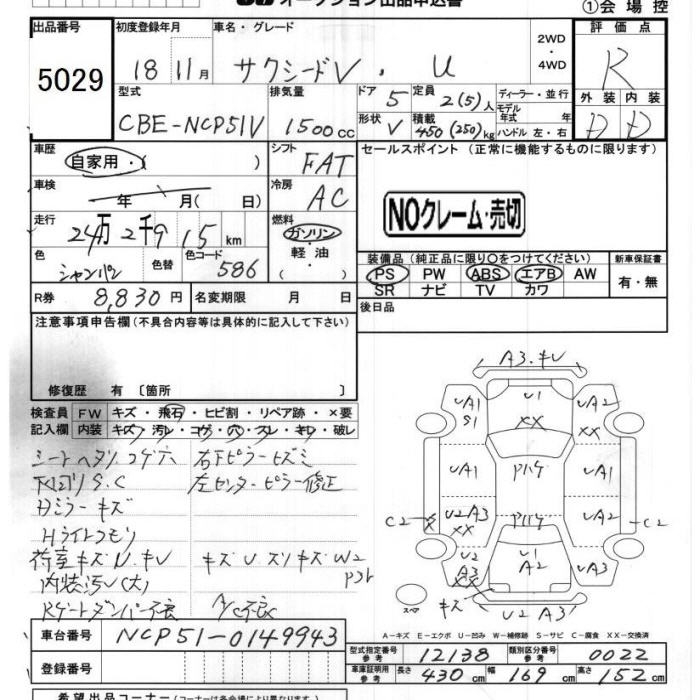 オークション出品申込書
①会場控
出品番号 初度登録年月 車名・グレード 2WD ・ 4WD 評価点
5029 18 11月 サクシードV ・ U R
型式 排気量 ドア 5 定員 2(5)人 ディーラー・並行 外装 内装
CBE-NCP51V 1500cc 形状 V 積載 450(250)kg モデル年式 年 ハンドル 左・右 D D
車歴 自家用・( ) シフト FAT セールスポイント (正常に機能するものに限ります)
車検 年 月(日) 冷房 AC
NOクレーム・売切
走行 24万2千915km 燃料 ガソリン・軽油・( )
色 シャンパン 色替 色コード 586
装備品(純正品に限り○をつけてください) 新車保証書
PS PW ABS エアB AW 有・無
SR ナビ TV カワ
R券 8,830円 名変期限 月 日 後日品
注意事項申告欄(不具合内容等は具体的に記入して下さい)
修復歴 有〔箇所 〕
検査員記入欄 FW キズ・飛石・ヒビ割・リペア跡・×要
内装 キズ・汚レ・コゲ・穴・スレ・キレ・破レ
シートヘタリ コゲ穴 右Fピラーヒズミ
下回りS.C 左センターピラー修正
Dミラーキズ
Hライトクモリ
荷室キズU.キレ キズUスリキズW2
内装汚レ(大)
Rゲートダンパー不良 A/C不良
A3.キレ
UA1 S1 U1 XX UA2 XX
UA1 UA1
C2 X U2 A3 XX UA2 C2
U2 A3 XX U1 A2 UA3
スペア キズ U2 A3
A-キズ E-エクボ U-凹み W-補修跡 S-サビ C-腐食 XX-交換済
車台番号 NCP51-0149943
型式指定番号 参考 12138 類別区分番号 参考 0022
登録番号 車庫証明用 参考 長さ 430cm 幅 169cm 高さ 152cm
希望出品コーナー(コーナーは各会場により異なります)